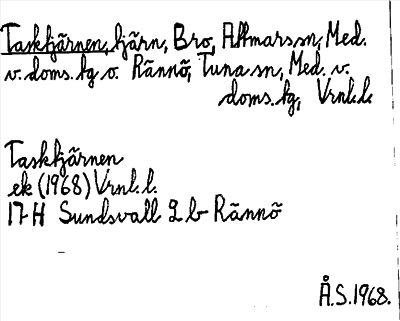 Tasktjärnen, tjärn, Bro, Attmars sn, Med.
v. doms. tg o. Rännö, Tuna sn, Med. v.
doms. tg, Vrnl. l.
Tasktjärnen
ek (1968) Vrnl. l.
17 H Sundsvall 2 b Rännö
Å.S. 1968.